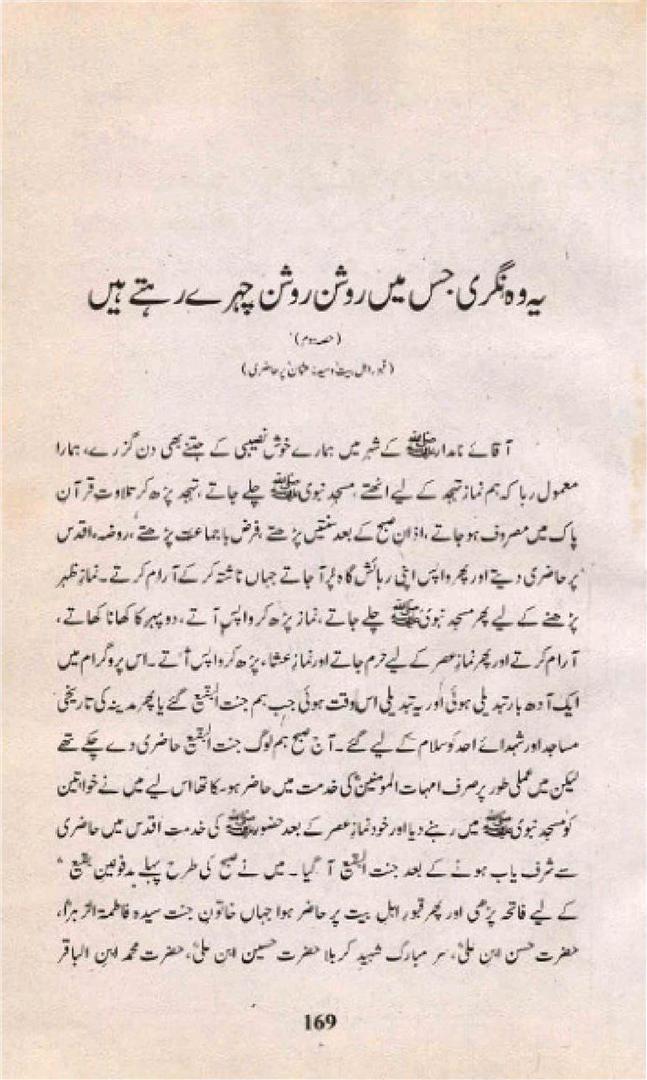 یہ وہ نگری جس میں روشن روشن چہرے رہتے ہیں
(حصہ دوم)
(قبور اہل بیت و سیدنا عثمانؓ پر حاضری)
آقائے نامدار ﷺ کے شہر میں ہمارے خوش نصیبی کے جتنے بھی دن گزرے، ہمارا
معمول رہا کہ ہم نماز تہجد کے لیے اٹھتے، مسجد نبوی ﷺ چلے جاتے، تہجد پڑھ کر تلاوت قرآنِ
پاک میں مصروف ہو جاتے، اذانِ صبح کے بعد سنتیں پڑھتے، فرض با جماعت پڑھتے، روضہء اقدس
پر حاضری دیتے اور پھر واپس اپنی رہائش گاہ پر آ جاتے جہاں ناشتہ کر کے آرام کرتے۔ نمازِ ظہر
پڑھنے کے لیے پھر مسجد نبوی ﷺ چلے جاتے، نماز پڑھ کر واپس آتے، دوپہر کا کھانا کھاتے،
آرام کرتے اور پھر نماز عصر کے لیے حرم جاتے اور نمازِ عشاء پڑھ کر واپس آتے۔ اس پروگرام میں
ایک آدھ بار تبدیلی ہوئی اور یہ تبدیلی اس وقت ہوئی جب ہم جنت البقیع گئے یا پھر مدینہ کی تاریخی
مساجد اور شہدائے احد کو سلام کے لیے گئے۔ آج صبح ہم لوگ جنت البقیع حاضری دے چکے تھے
لیکن میں عملی طور پر صرف امہات المومنینؓ کی خدمت میں حاضر ہو سکا تھا اس لیے میں نے خواتین
کو مسجد نبوی ﷺ میں رہنے دیا اور خود نماز عصر کے بعد حضور ﷺ کی خدمت اقدس میں حاضری
سے شرف یاب ہونے کے بعد جنت البقیع آ گیا۔ میں نے صبح کی طرح پہلے مدفونین بقیع
کے لیے فاتحہ پڑھی اور پھر قبورِ اہلِ بیت پر حاضر ہوا جہاں خاتونِ جنت سیدہ فاطمۃ الزہراؓ،
حضرت حسن ابنِ علیؓ، سر مبارک شہیدِ کربلا حضرت حسین ابن علیؓ، حضرت محمد ابنِ الباقر
169